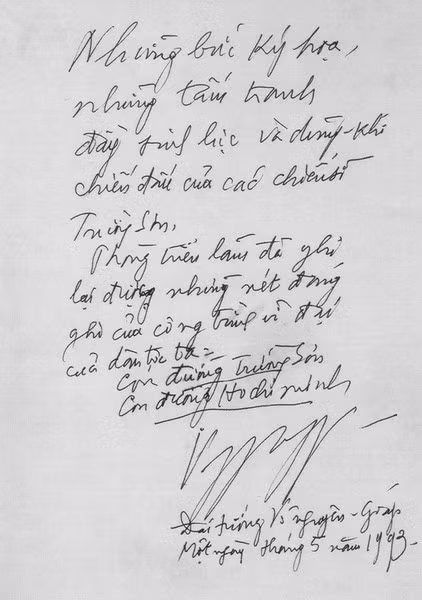 Những bức ký họa,
những tấm tranh
đầy sinh lực và dũng-khí
chiến đấu của các chiến sĩ
Trường Sơn,
Phòng triển lãm đã ghi
lại được những nét đáng
ghi của công trình vĩ đại
của dân tộc ta =
Con đường Trường Sơn
Con đường Hồ Chí Minh
Đại tướng Võ nguyên-Giáp
Một ngày tháng 5 năm 1993-